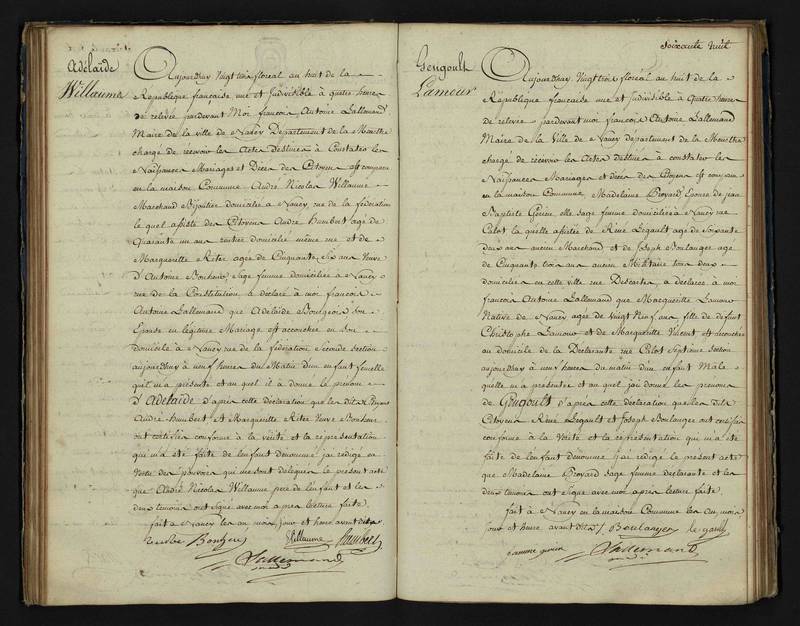 Adélaïde
Willaume
Aujourdhuy Vingt trois floréal an huit de la
République française une et Indivisible à quatre heures
de relevée pardevant Moi françois Antoine Lallemand
Maire de la ville de Nancy Département de la Meurthe
chargé de recevoir les Actes destinés à Constater les
Naissances Mariages et Décès des Citoyens est comparu
en la maison Commune André Nicolas Willaume
Marchand Bijoutier domicilié à Nancy rue de la fédération
le quel assisté des Citoyens André humbert agé de
Quarante un ans rentier domicilié même rue et de
Margueritte Riter agée de Cinquante Six ans Veuve
d'Antoine Bonhomme Sage femme domiciliée à Nancy
rue de la Constitution à déclaré à moi françois
Antoine Lallemand que Adelaïde Bourgeois Son
Epouse en légitime Mariage est accouchée en Son
domicile à Nancy rue de la fédération Seconde Section
aujourdhuy à neuf heures du Matin d'un enfant femelle
qu'il m'a présenté et au quel il à donné le prenom
d'Adelaïde d'après cette déclaration que les dits
André humbert et Marguerite Riter Veuve
ont certifiée conforme à la vérité et la représentation
qui m'a été faite de l'enfant dénommé j'ai rédigé en
Vertu des pouvoirs qui me sont délégués le présent acte
que André Nicolas Willaume père de l'enfant et les
deux temoins ont signé avec moi après lecture faite.
fait à Nancy les an mois, jour et heure avant dits
Willaume humbert
Lallemand
Soixante huit
Gengoult
Lamour
Aujourdhuy Vingt trois floréal an huit de la
République française une et Indivisible à Quatre heures
de relevée pardevant Moi françois Antoine Lallemand
Maire de la Ville de Nancy département de la Meurthe
chargé de recevoir les Actes destinés à constater les
Naissances Mariages et décès des Citoyens est comparu
en la maison Commune Madelaine Provard Epouse de jean
Baptiste elle Sage femme domiciliée à Nancy rue
Calot la quelle assistée de René Legault agé de Soixante
deux ans ancien Marchand et de Joseph Boulanger agé
de Cinquante trois ans ancien Militaire tous deux
domiciliés en cette ville rue Descartes, a déclaré à moi
françois Antoine Lallemand que Marguerite Lamour
Native de Nancy agée de Vingt Neuf ans, fille de défunt
Christophe Lamour et de Marguerite Vincent est accouchée
au domicile de la Déclarante rue Calot Septième Section
aujourdhuy à neuf heures du matin d'un enfant Male
quelle m'a présenté et au quel j'ai donné les prenoms
de Gengoult d'après cette déclaration que les dits
Citoyens René Legault et Joseph Boulanger ont certifiée
conforme à la Vérité et la représentation qui m'a été
faite de l'enfant dénommé j'ai rédigé le présent acte
que Madelaine Provard Sage femme déclarante et les
deux temoins ont signé avec moi après lecture faite.
fait à Nancy en la maison Commune les an, mois
jour et heure avant dits / Boulanger
Lallemand